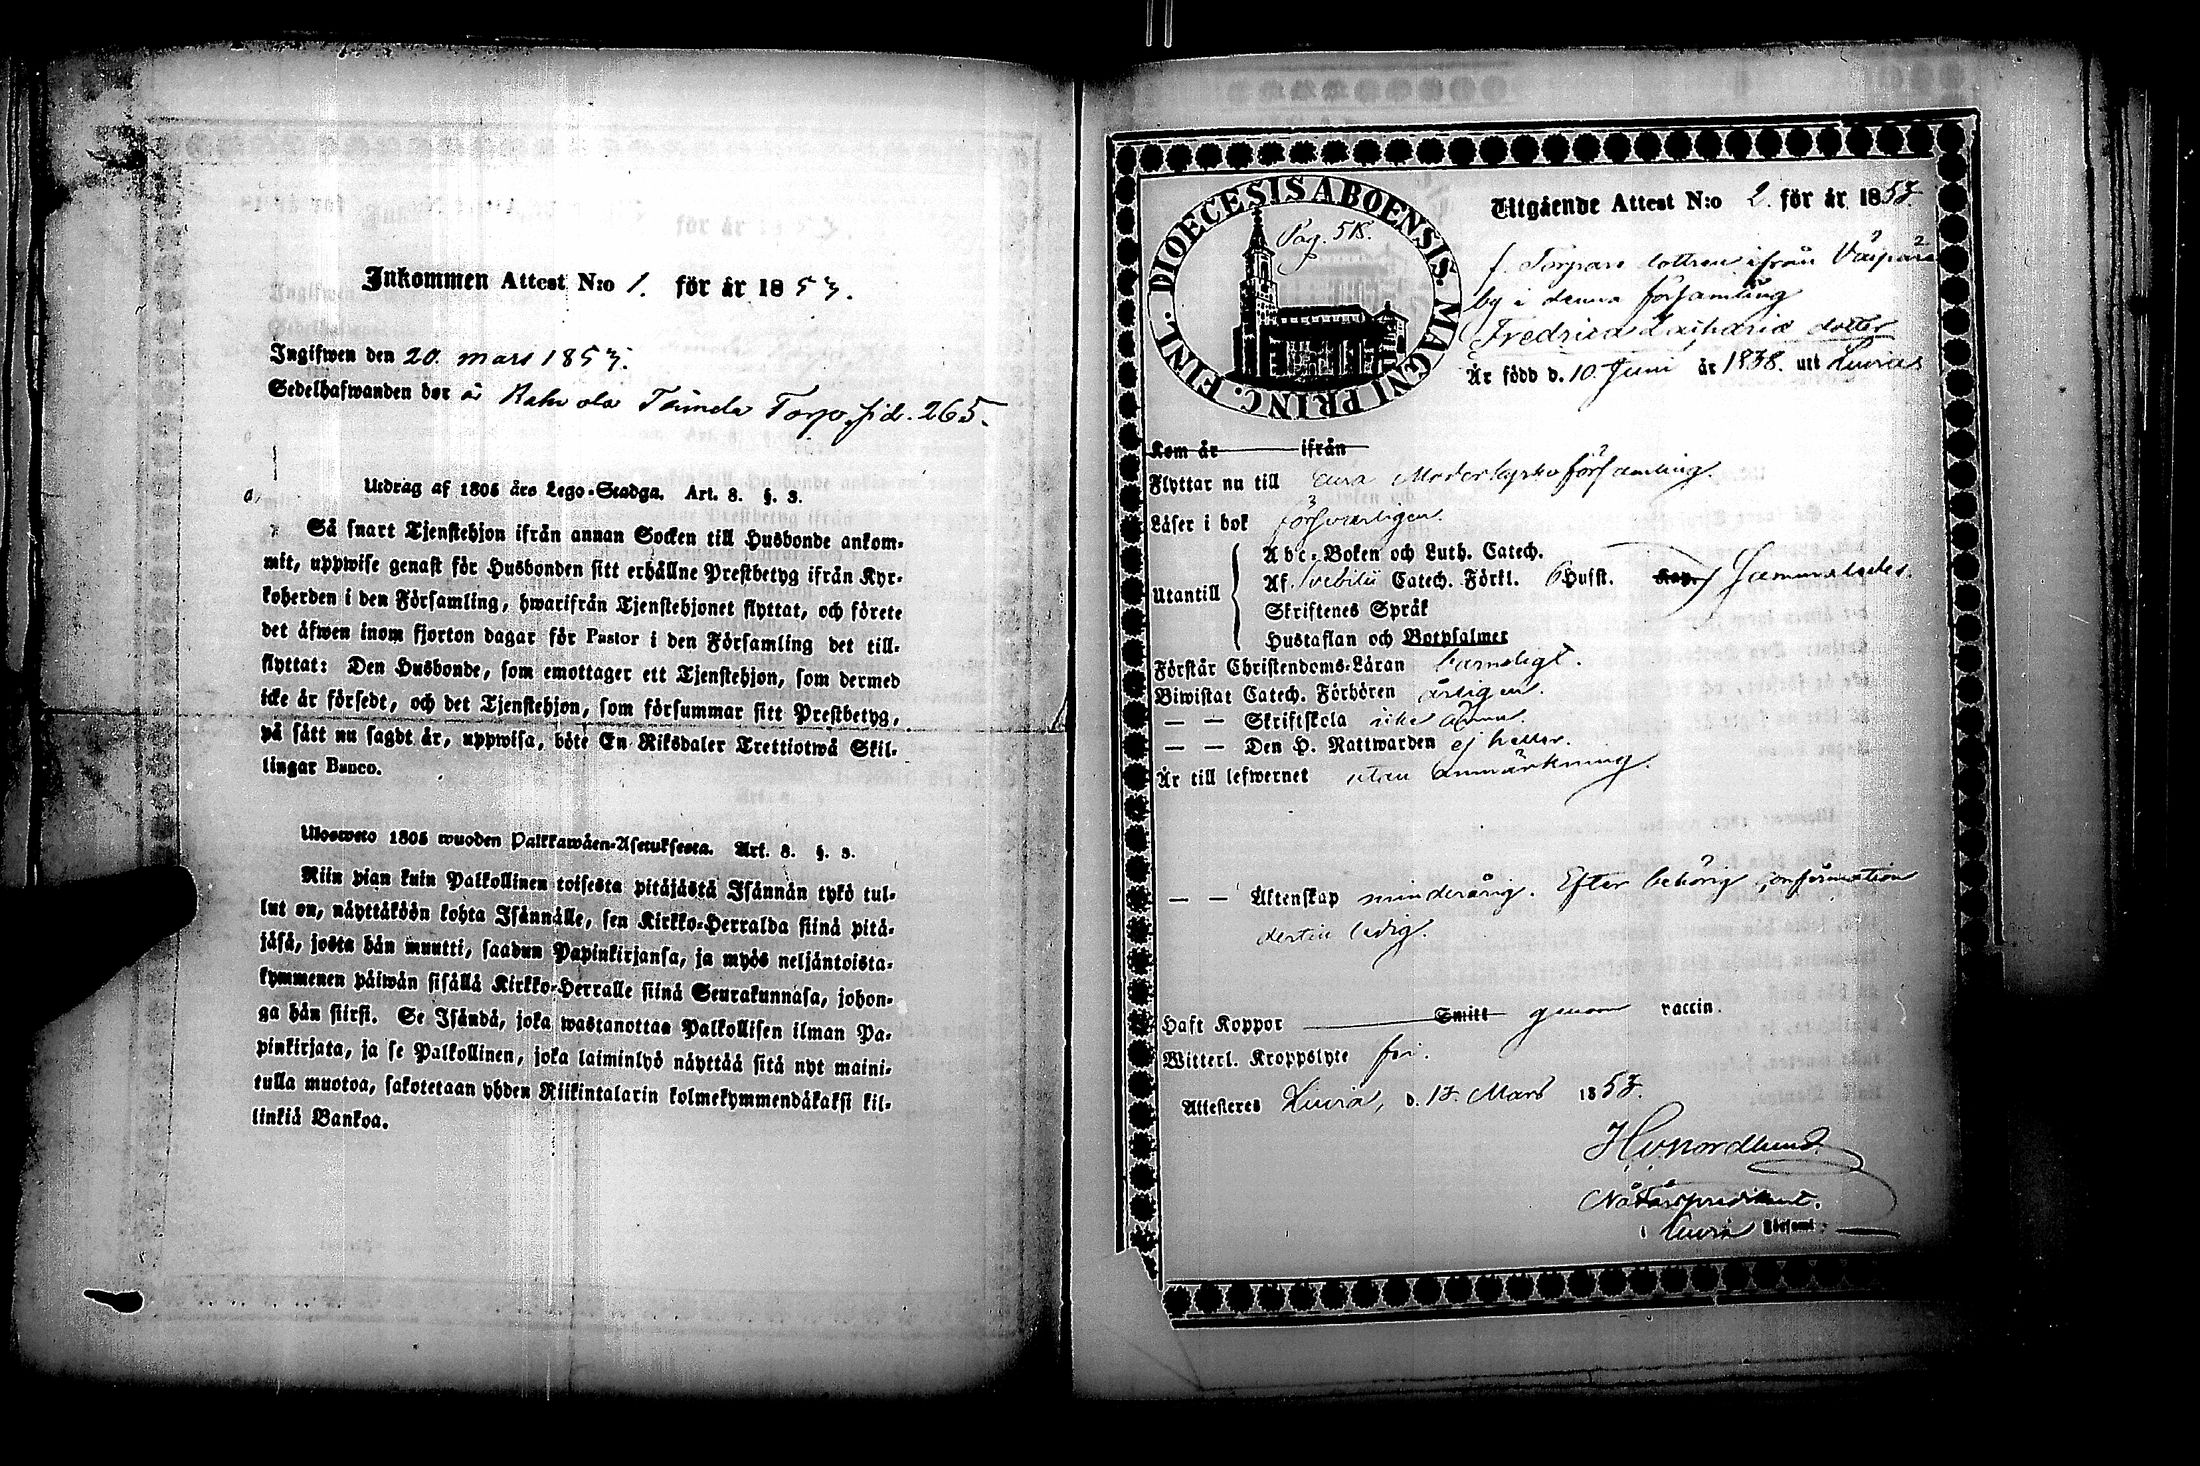 Inkommen Attest N:o 1. för år 1853.
Ingifwen den 20. mars 1853.
Sedelhafwanden bor å Torp. sid. 265.
Utdrag af 1805 års Lego-Stadga. Art. 8. §. 3.
Så snart Tjenstehjon ifrån annan Socken till Husbonde ankom-
mit, uppwise genast för Husbonden sitt erhållne Prestbetyg ifrån Kyr-
koherden i den Församling, hwarifrån Tjenstehjonet flyttat, och förete
det äfwen inom fjorton dagar för Pastor i den Församling det till-
flyttat: Den Husbonde, som emottager ett Tjenstehjon, som dermed
icke är försedt, och det Tjenstehjon, som försummar sitt Prestbetyg,
på sätt nu sagdt är, uppwisa, böte En Riksdaler Trettiotwå Skil-
lingar Banco.
Ulosweto 1805 wuoden Palkkawäen-Asetuksesta. Art. 8. §. 3.
Niin pian kuin Palkollinen toisesta pitäjästä Isännän tykö tul-
lut on, näyttäköön kohta Isännälle, sen Kirkko-Herralda siinä pitä-
jäsä, josta hän muutti, saadun Papinkirjansa, ja myös neljäntoista-
kymmenen päiwän sisällä Kirkko-Herralle siinä Seurakunnasa, johon-
ga hän siirsi. Se Isändä, joka wastanottaa Palkollisen ilman Pa-
pinkirjata, ja se Palkollinen, joka laiminlyö näyttää sitä nyt maini-
tulla muotoa, sakotetaan yhden Riikintalarin kolmekymmendäkaksi kil-
linkiä Bankoa.
DIOECESIS ABOENSIS. MAGNI PRINC. FINL.
Pag. 518.
Utgående Attest N:o 2. för år 1853
f. Torpare dottren ifrån
by i denna församling
Fredrica Zacharia dotter
Är född d. 10 Juni år 1838. uti Luvia
Kom år ifrån
Flyttar nu till Eura Moderkyrko församling.
Läser i bok försvarligen.
Utantill
Abc-Boken och Luth. Catech.
Af Svebilii Catech. Förkl. 6 Husst.
Skriftenes Språk
Hustaflan och Botpsalmer
Förstår Christendoms-Läran barnsligt.
Biwistat Catech. Förhören årligen.
— — Skriftskola icke ännu.
— — Den H. Nattwarden ej heller.
Är till lefwernet utan anmärkning.
— — Äktenskap minderårig. Efter behörig confirmation
dertill ledig.
Haft Koppor Smitt genom vaccin.
Witterl. Kroppslyte fri.
Attesteres Luvia, d. 17. Mars 1853.
Nådårspredikant.
i Luvia Församl: